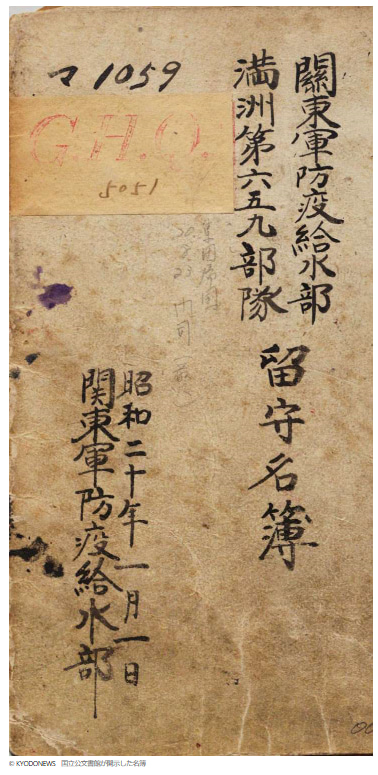 マ1059
G.H.Q.
5051
關東軍防疫給水部
満洲第六五九部隊
留守名簿
昭和二十年一月一日
関東軍防疫給水部
© KYODONEWS 国立公文書館が開示した名簿